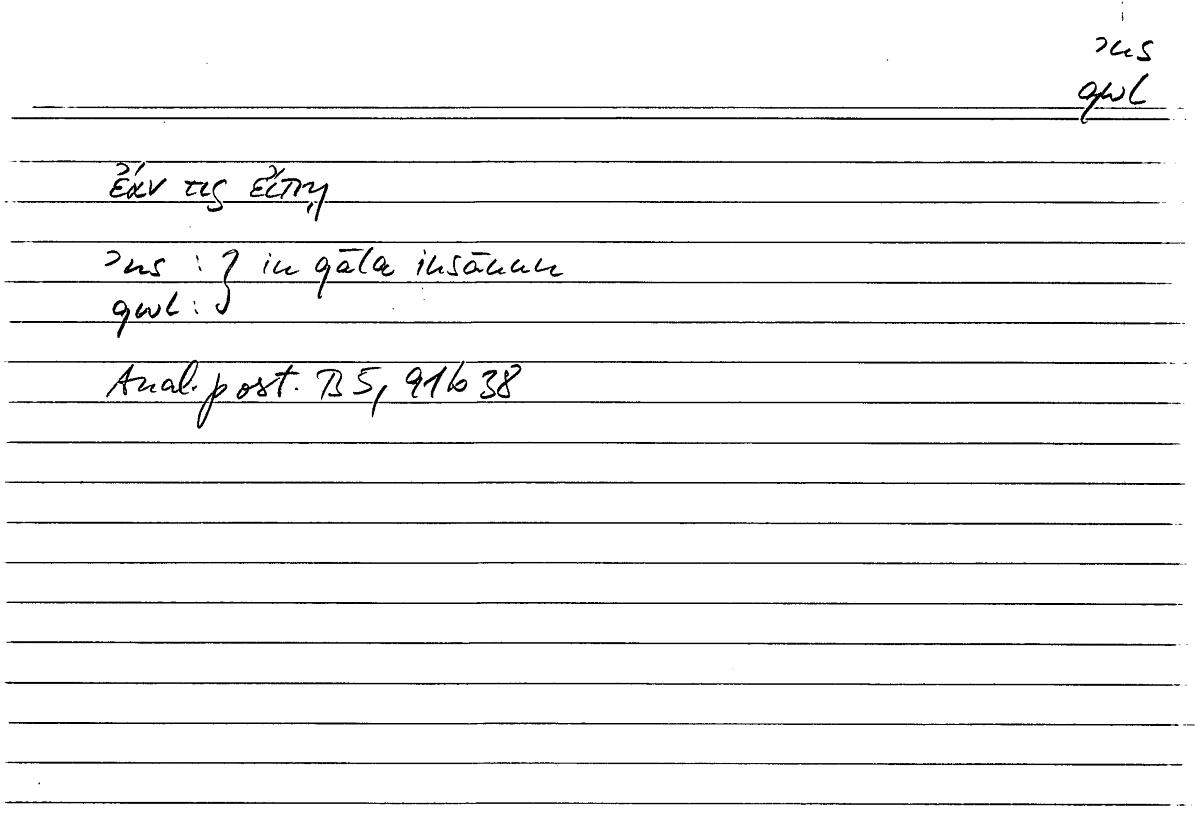 ʾns
qwl
ἐάν τις εἴπῃ
ʾns : } in qāla insānun
qwl : }
Anal. post. B 5, 91b38